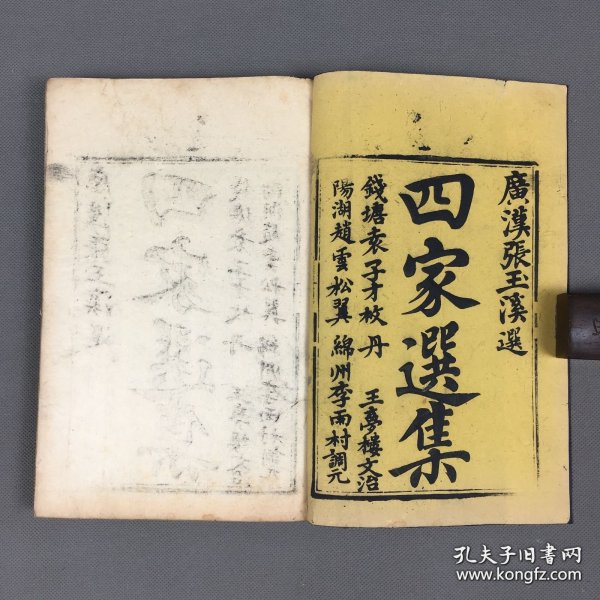 廣漢張玉溪選
四家選集
錢塘袁子才枚 丹 王夢樓文治
陽湖趙雲松翼 綿州李雨村調元
孔夫子旧書网
www.kongfz.com